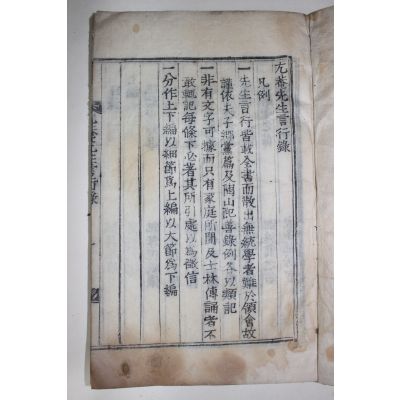 尤菴先生言行錄
凡例
一先生言行皆載全書而散出無統學者難於領會故
謹依夫子鄕黨篇及閩山記善錄例各以類記
一非有文字可據而只有家庭所聞及士林傳誦者不
敢輒記每條下必著其所引處以爲徵信
一分作上下編以細節爲上編以大節爲下編